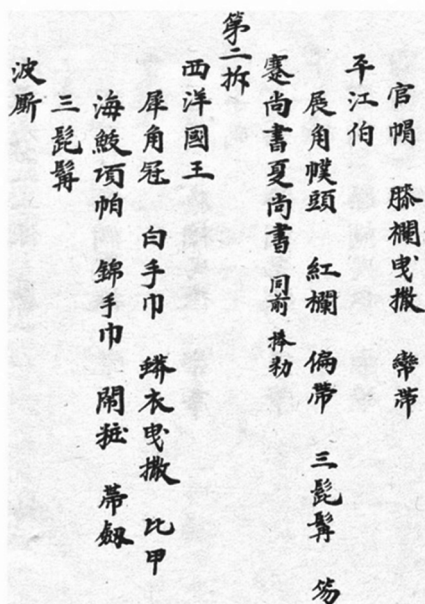 官帽　膝襴曳撒　鸞帶
平江伯
展角幞頭　紅襴　偏帶　三髭髯　笏
蹇尚書夏尚書同前　捧勅
第二折
西洋國王
犀角冠　白手巾　蟒衣曳撒　比甲
海鮫項帕　錦手巾　鬧粧　帶劔
三髭髯
波厮